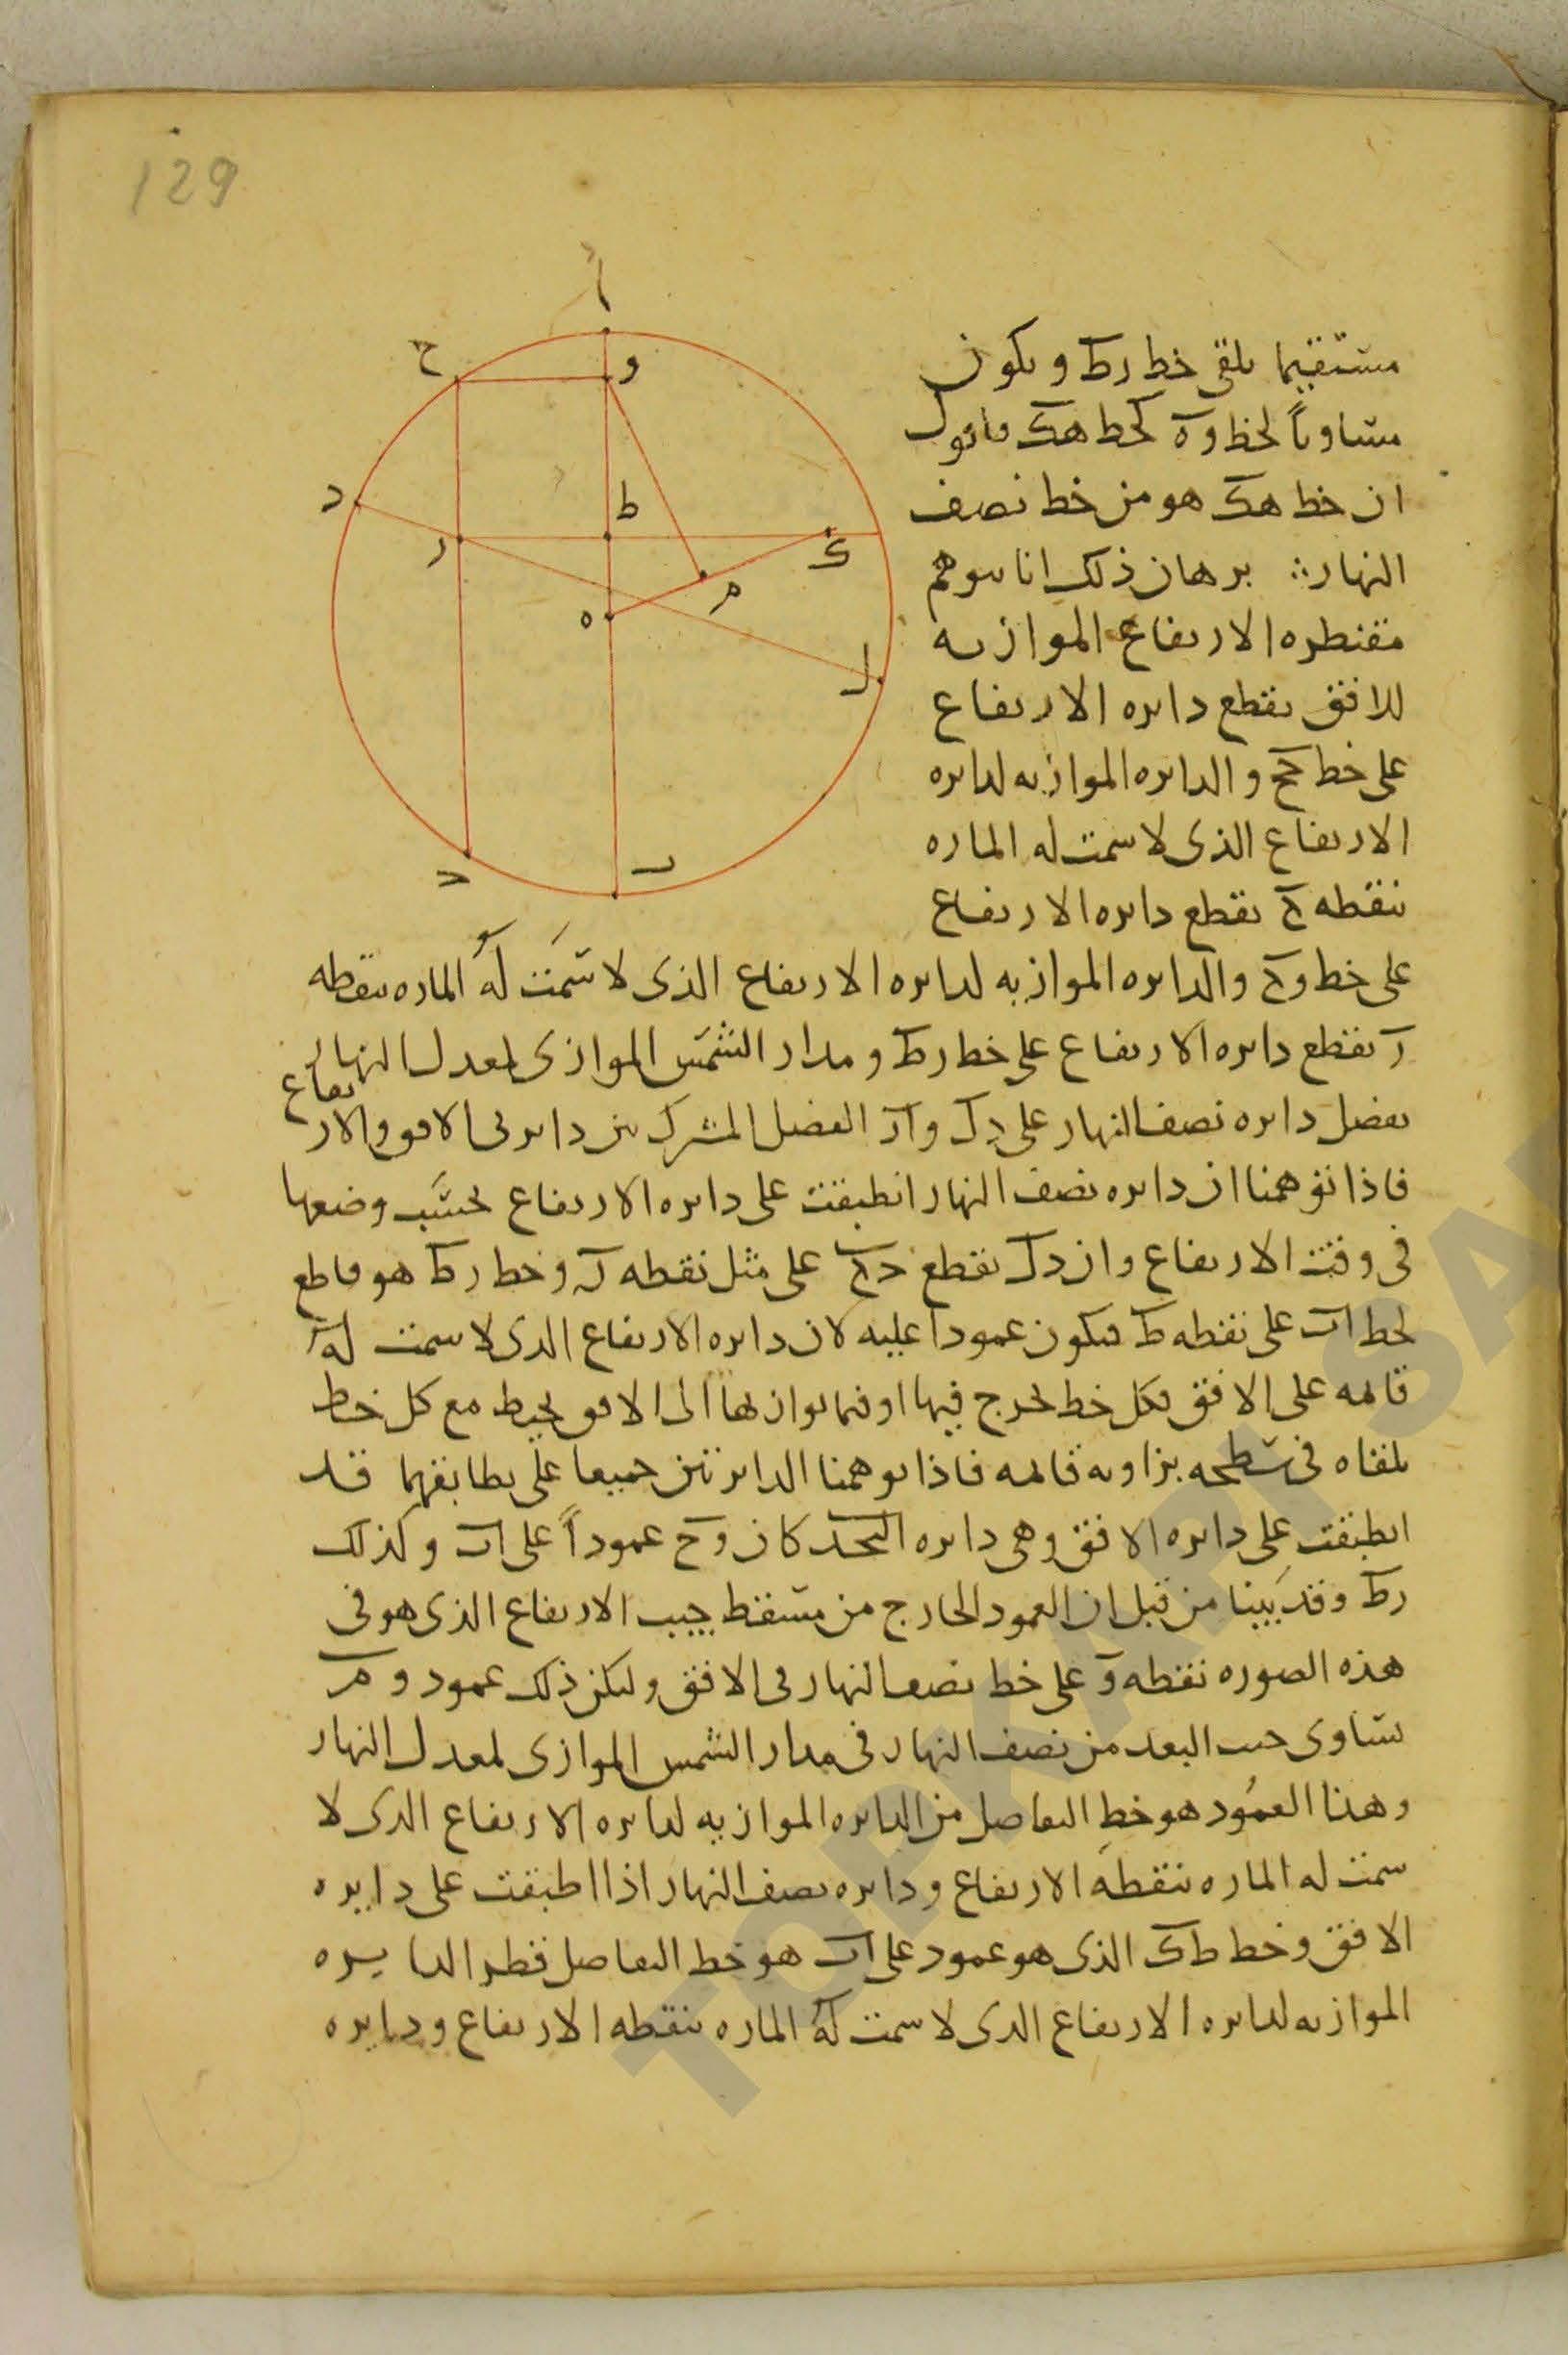 129
ا
ح
و
د
ط
ر
ى
م
ه
ل
ج
ب
مستقيما يلقى خط رط ويكون
مساوياً لخط وه كخط هك فاقول
ان خط هك هو من خط نصف
النهار ∴ برهان ذلك انا نتوهم
مقنطره الارتفاع الموازيه
للافق يقطع دايره الارتفاع
على خط حج والدايره الموازيه لدايره
الارتفاع الذى لا سمت له الماره
بنقطه ح يقطع دايره الارتفاع
على خط وح والدايره الموازيه لدايره الارتفاع الذى لا سمت له الماره بنقطه
ر يقطع دايره الارتفاع على خط رط ومدار الشمس الموازى لمعدل النهار
يفصل دايره نصف النهار على دل واب الفصل المشترك بين دايرتى الافق والارتفاع
فاذا توهمنا ان دايره نصف النهار انطبقت على دايره الارتفاع بحسب وضعها
فى وقت الارتفاع وان دل يقطع حج على مثل نقطه ر وخط رط هو قاطع
لخط اب على نقطه ط فيكون عموداً عليه لان دايره الارتفاع الذى لا سمت له
قايمه على الافق فكل خط يخرج فيها او فيما يوازيها الى الافق يحيط مع كل خط
يلقاه فى سطحه بزاويه قايمه فاذا توهمنا الدايرتين جميعا على تطابقهما قد
انطبقت على دايره الافق وهى دايره ابجد كان وح عموداً على اب وكذلك
رط وقد بينا من قبل ان العمود الخارج من مسقط جيب الارتفاع الذى هو فى
هذه الصوره نقطه و على خط نصف النهار فى الافق وليكن ذلك عمود وم
يساوى جيب البعد من نصف النهار فى مدار الشمس الموازى لمعدل النهار
وهذا العمود هو خط التفاصل من الدايره الموازيه لدايره الارتفاع الذى لا
سمت له الماره بنقطه الارتفاع ودايره نصف النهار اذا اطبقت على دايره
الافق وخط طك الذى هو عمود على اب هو خط التفاصل قطر الدايره
الموازيه لدايره الارتفاع الذى لا سمت له الماره بنقطه الارتفاع ودايره
TOPKAPI SA